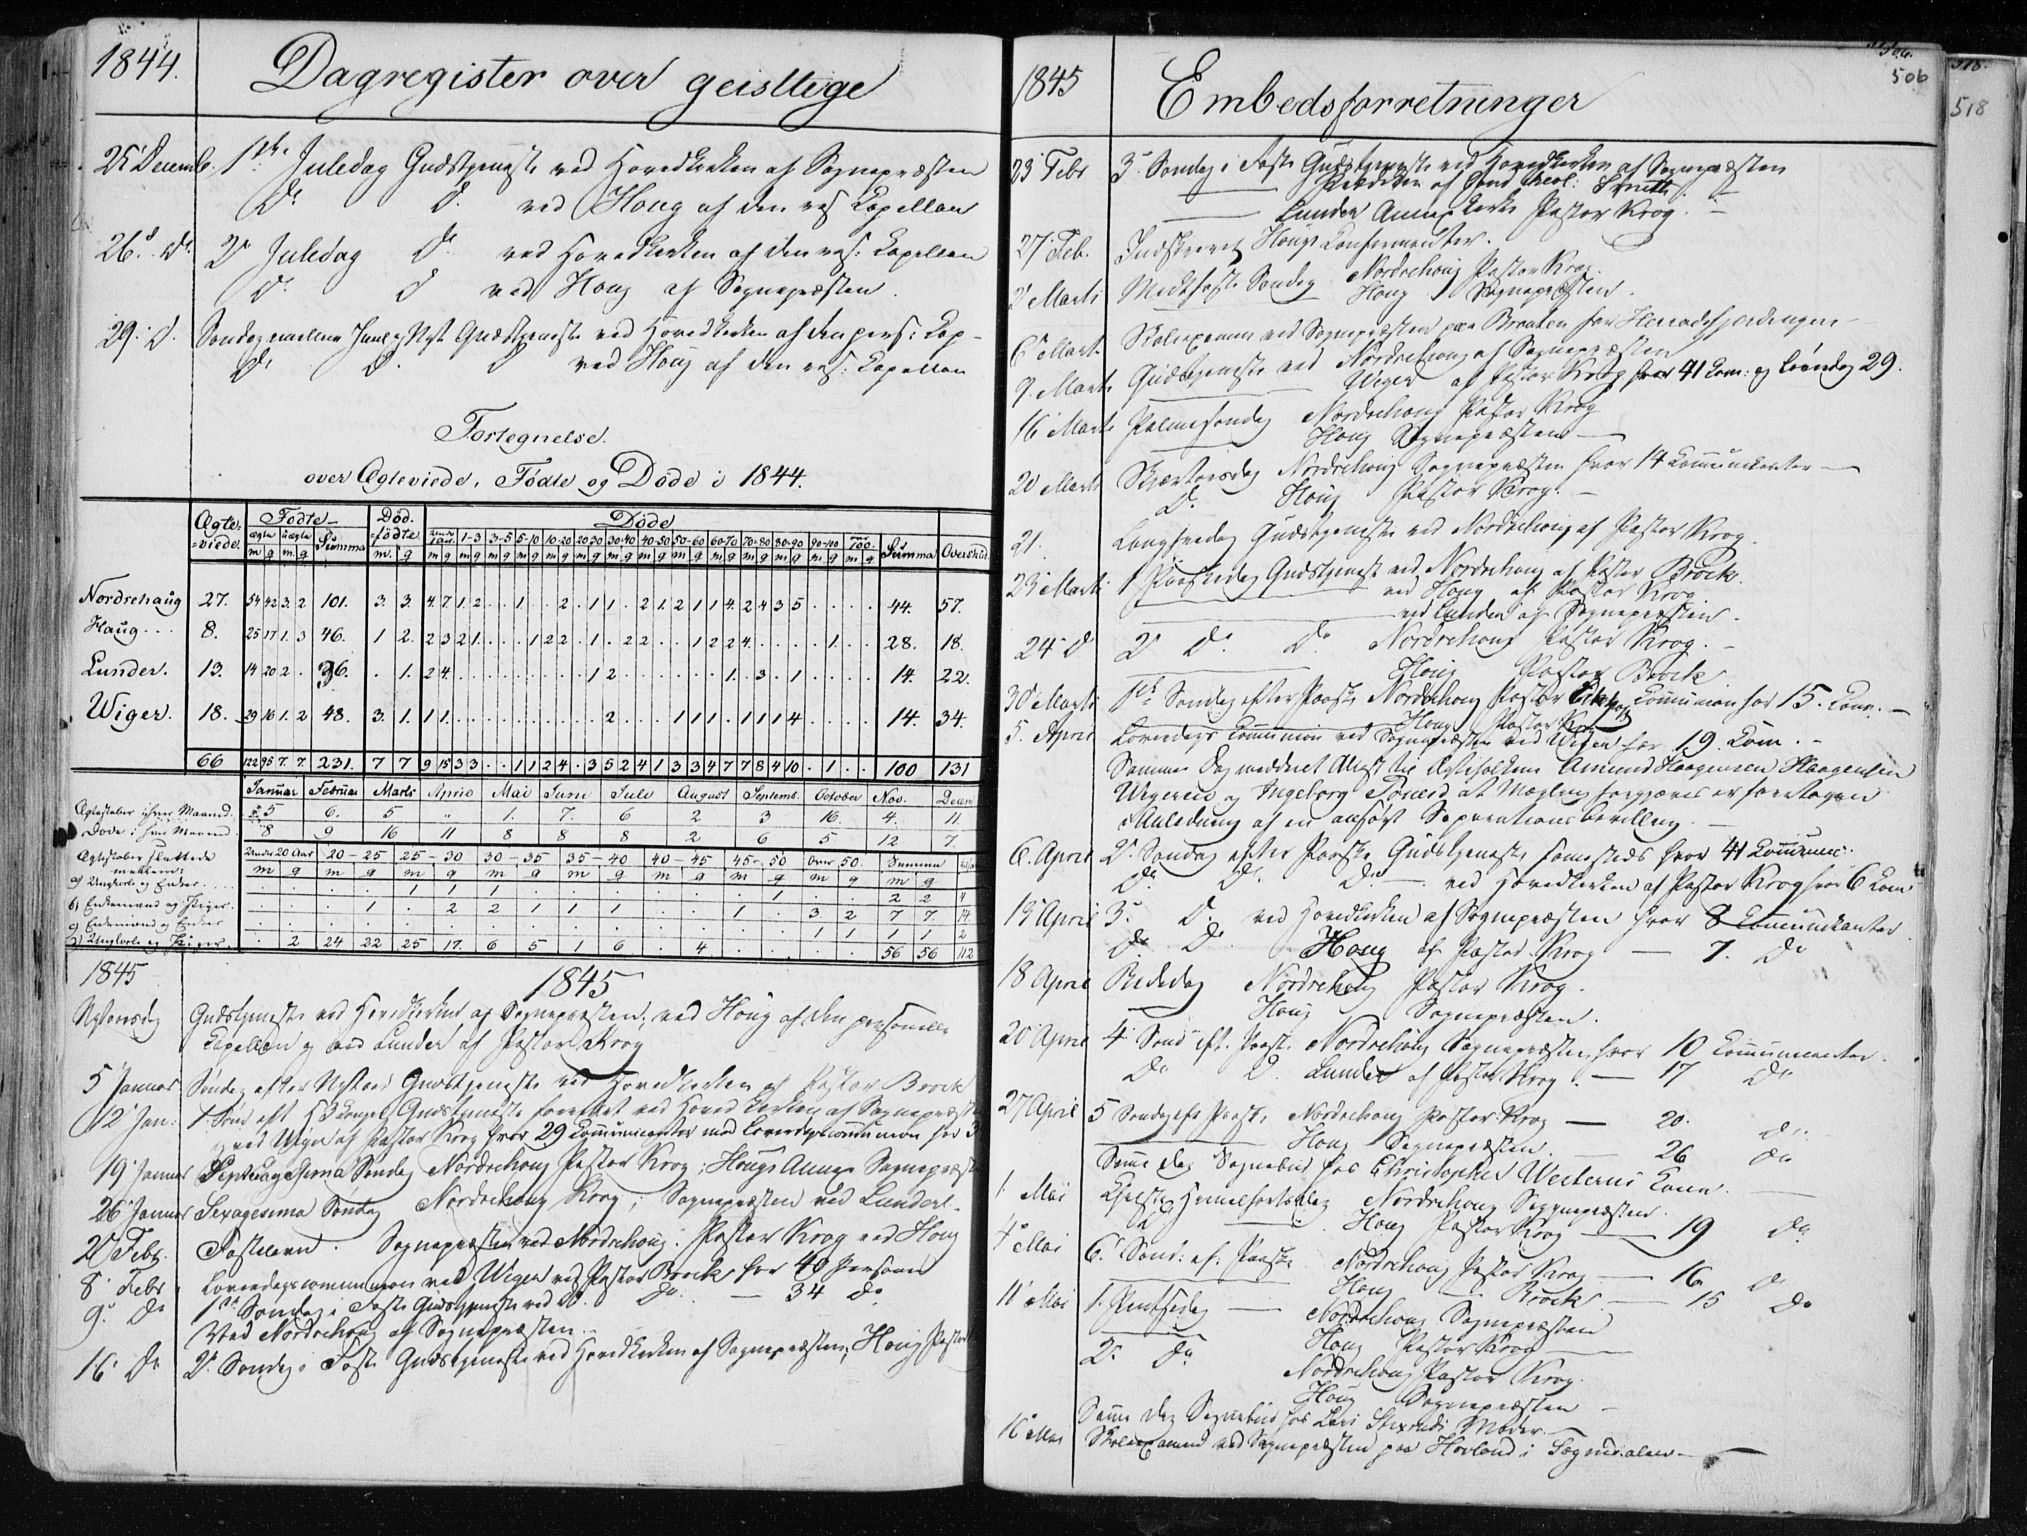 1844.
Dagregister over geistlige
25 Decemb. 1ste Juledag Gudstjeneste ved Hovedkirken af Sognepræsten
Do d. ved Houg af den res Capellan
26d. Do 2n Juledag Do ved Hovedkirken af den res: Capellan
Do d ved Houg af Sognepræsten.
29. D. Søndag mellem Juul og Nyt. Gudstjeneste ved Hovedkirken af den pers: Cap-
Do D. D ved Houg af den res: Capellan
Fortegnelse.
over Ægteviede, Fødte og Døde i 1844.
Ægte-viede. Fødte Død-fødte Døde
ægte uægte Summa 1-3 3-5 5-10 10-20 20-30 30-40 40-50 50-60 60-70 70-80 80-90 90-100 100. Summa Overskud
Nordrehaug 27. 54 42 3. 2 101. 3. 3. 4. 7 1. 2 . . 1 . . 2 . 1 1 . 2 1. 2 1 1 4. 2 4 3 5 . . . . 44. 57.
Haug . . . 8. 25 17 1. 3 46. 1 2. 2 3 2 1. . . . 1 2 2 . 1 . 2 2 . . 1 2 2 4. . . . . 1. . . 28. 18.
Lunder. 13. 14 20 2 . 36. . 1. 2 4. 1 2 1. . 3. . 1 14. 22.
Wiger. 18. 29 16 1. 2 48. 3. 1. 1 1. 2 . . . 1 1 1 . 1 1 1 4 14. 34.
66 122 95 7. 7. 231. 7 7 9 15 3 3 . . 1 1 2 4 . 3 5 2 4 1 3 3 4 7 7 8 4 10 . 1 . . 100 131
Januar Februar Marts April Mai Juni Juli August Septemb. October Nov. Decem
Ægteskaber i hver Maaned. 5 6. 5 " 1. 7. 6 2 3 16. 4. 11
Døde i hver Maaned 8 9 16 11 8 8 8 2 6 5 12 7.
Ægteskaber sluttede mellem: under 20 Aar 20 - 25 25 - 30 30 - 35 35 - 40 40 - 45 45 - 50 over 50. Summa
m g m g m g m g m g m g m g m g m g
a) Ungkarle og Enker . . . . . 1 1 1 . . . . 1 . . 2 2 4
b) Enkemænd og Piger . . . 1 . 2 2 1 1 1 . . 1 . 3 2 7 7. 14
c) Enkemænd og Enker 1 1 1 1 2
d) Ungkarle og Piger . 2 24 22 25 17. 6 5 1 6 . 4 56 56 112
1845 1845
Nytaarsdag Gudstjeneste ved Hovedkirken af Sognepræsten; ved Houg af den personelle
Capellan og ved Lunder af Pastor Krog
5 Januar Søndag efter Nytaar Gudstjeneste ved Hovedkirken af Pastor Brock
12 Jan: 1. Sønd eft H3Konger Gudstjeneste forrettet ved Hovedkirken af Sognepræst
ved Wiger af Pastor Krog hvor 29 Communicanter med Løverdagscommunion for 3
19 Januar Septuagesima Søndag Nordrehoug Pastor Krog; Hougs Annex Sognepræst
26 Januar Sexagesima Søndag Nordrehoug Krog; Sognepræsten ved Lunder.
2 Febr. Fastelavn. Sognepræsten ved Nordrehoug. Pastor Krog ved Houg
8 Febr Løverdagscommunion ved Wiger ved Pastor Brock for 40 Personer
9. Do 1ste Søndag i Faste Gudstjeneste ved D. Do — 34 Do
Ved Nordrehoug af Sognepræsten.
16 Do 2. Søndag i Faste Gudstjeneste ved Hovedkirken af Sognepræsten; Houg Pastor
1845
Embedsforretninger
506
518.
518
23 Febr 3. Søndag i Faste Gudstjeneste ved Hovedkirken af Sognepræsten
af Cand theol: Smith.
Lunder Annex Kirke Pastor Krog. —
27 Feb. Indskrevet Hougs Confirmanter.
2 Marts Midtfaste Søndag Nordrehoug Pastor Krog.
Houg Sognepræsten.
6 Marts Skoleexamen ved Sognepræsten paa Braaten for
9 Marts Gudstjeneste ved Nordrehoug af Sognepræsten
Wiger af Pastor Krog hvor 41 Com: og Løverdag 29.
16 Marts Palmesøndag Nordrehoug Pastor Krog
Houg Sognepræsten —
20 Marts Skjærtorsdag Nordrehoug Sognepræsten hvor 14 Communicanter —
D. Houg Pastor Krog. —
21. Langfredag Gudstjeneste ved Nordrehoug af Pastor Krog.
23 Marts 1 Paaskedag Gudstjeneste ved Nordrehoug af Pastor Brock.
ved Houg af Pastor Krog
ved Lunder af Sognepræsten.
24 D 2 Do Do Nordrehoug Pastor Krog. —
Houg Pastor Brock
30 Marts 1ste Søndag efter Paaske Nordrehoug Pastor Communion for 15. Com. —
Houg Pastor Krog
5. April Løverdags Communion ved Sognepræsten ved Wiger for 19 Com. -
Samme Dag meddeelt Attest til Ægtefolkene Amund Haagensen Haagensen
Wigeren og Ingeborg at Mægling forgjæves er foretagen
i Anledning af en ansøgt Separationsbevilling. —
6. April 2. Søndag efter Paaske Gudstjeneste samesteds hvor 41 Commun:
Do D. Do ved Hovedkirken af Pastor Krog hvor 6 Com
13 April 3. D. ved Hovedkirken af Sognepræsten hvor 8 Communicanter
Do Do Houg af Pastor Krog — 7. Do
18 April Bededag Nordrehoug Pastor Krog.
Houg Sognepræsten.
20 April 4. Sønd eft. Paask. Nordrehoug Sognepræsten hvor 10 Communicanter.
Do D. Lunder af Pastor Krog. — 17 Do
27 April 5 Søndag eft Paask. Nordrehoug Pastor Krog — 20. Do
Houg Sognepræsten. — 26 Do
Samme Dag Sognebud hos Christopher Westerns Kone.
1 Mai Christi Himmelfartsdag Nordrehoug Sognepræsten.
Houg Pastor Krog — 19 Do
4 Mai 6. Sønd: ef: Paaske Nordrehoug Pastor Krog — 16. D
Houg — Brock. — 15 Do
11 Mai 1. Pintsedag — Nordrehoug Sognepræsten
Houg Pastor Krog —
2. Do Nordrehoug Pastor Krog.
Houg Sognepræsten —
Samme Dag Sognebud hos Lars Moder.
16 Mai Skoleexamen ved Sognepræsten paa Hovland i Sognedalen —